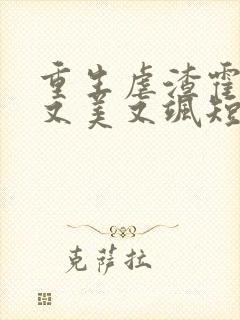 重生虐渣霍
又美又飒短
克萨拉